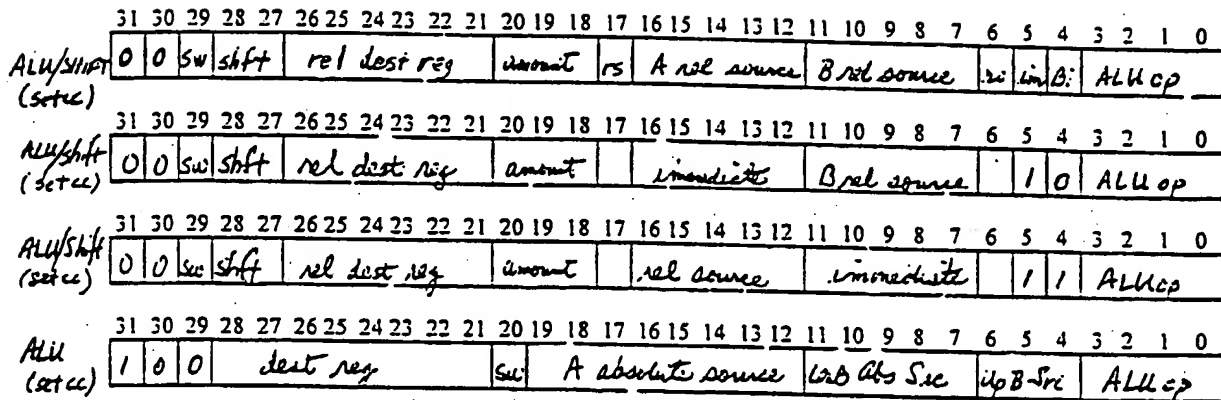 31 30 29 28 27 26 25 24 23 22 21 20 19 18 17 16 15 14 13 12 11 10 9 8 7 6 5 4 3 2 1 0
ALU/Shift 0 0 sw shft rel dest reg amount rs A rel source B rel source ri im Bi ALU op
(setcc)
31 30 29 28 27 26 25 24 23 22 21 20 19 18 17 16 15 14 13 12 11 10 9 8 7 6 5 4 3 2 1 0
ALU/shft 0 0 sw shft rel dest reg amount immediate B rel source 1 0 ALU op
(setcc)
31 30 29 28 27 26 25 24 23 22 21 20 19 18 17 16 15 14 13 12 11 10 9 8 7 6 5 4 3 2 1 0
ALU/Shift 0 0 sw shft rel dest reg amount rel source immediate 1 1 ALU op
(setcc)
31 30 29 28 27 26 25 24 23 22 21 20 19 18 17 16 15 14 13 12 11 10 9 8 7 6 5 4 3 2 1 0
ALU 1 0 0 dest reg sw A absolute source B Abs Src Up B-Src ALU op
(setcc)